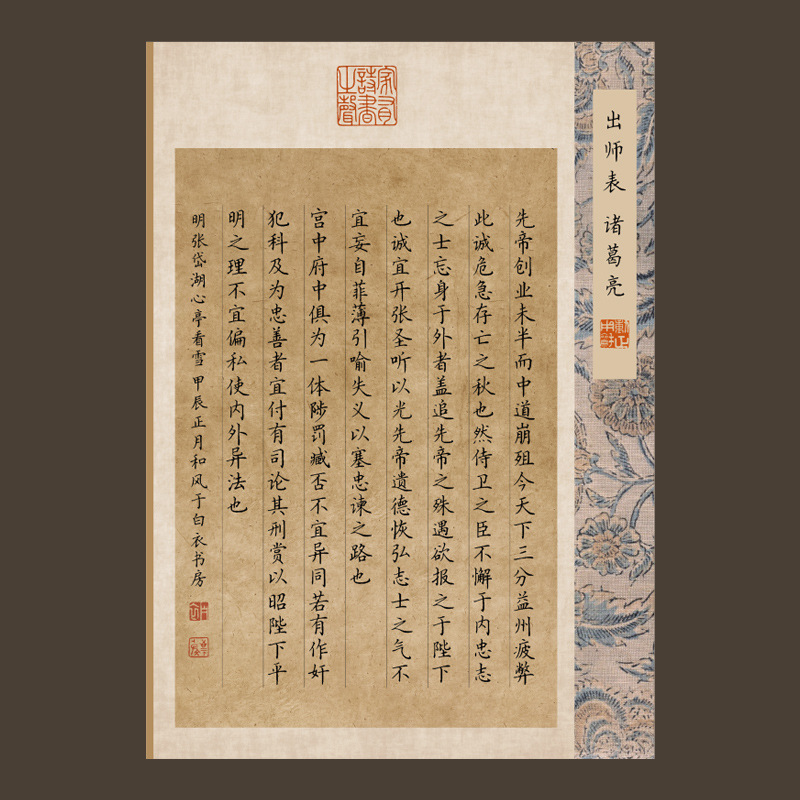 出师表 诸葛亮
家有詩書之聲
先帝创业未半而中道崩殂今天下三分益州疲弊
此诚危急存亡之秋也然侍卫之臣不懈于内忠志
之士忘身于外者盖追先帝之殊遇欲报之于陛下
也诚宜开张圣听以光先帝遗德恢弘志士之气不
宜妄自菲薄引喻失义以塞忠谏之路也
宫中府中俱为一体陟罚臧否不宜异同若有作奸
犯科及为忠善者宜付有司论其刑赏以昭陛下平
明之理不宜偏私使内外异法也
明张岱湖心亭看雪 甲辰正月和风于白衣书房